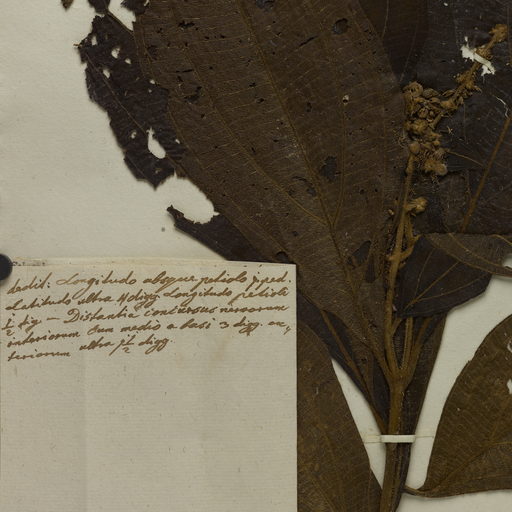 dedit: Longitudo absque petiolo 1 ped.
Latitudo ultra 4 digg. Longitudo petioli
1/2 dig — Distantia concursus nervorum
interiorum cum medio a basi 3 digg. ex,
teriorum ultra 1 1/2 digg.